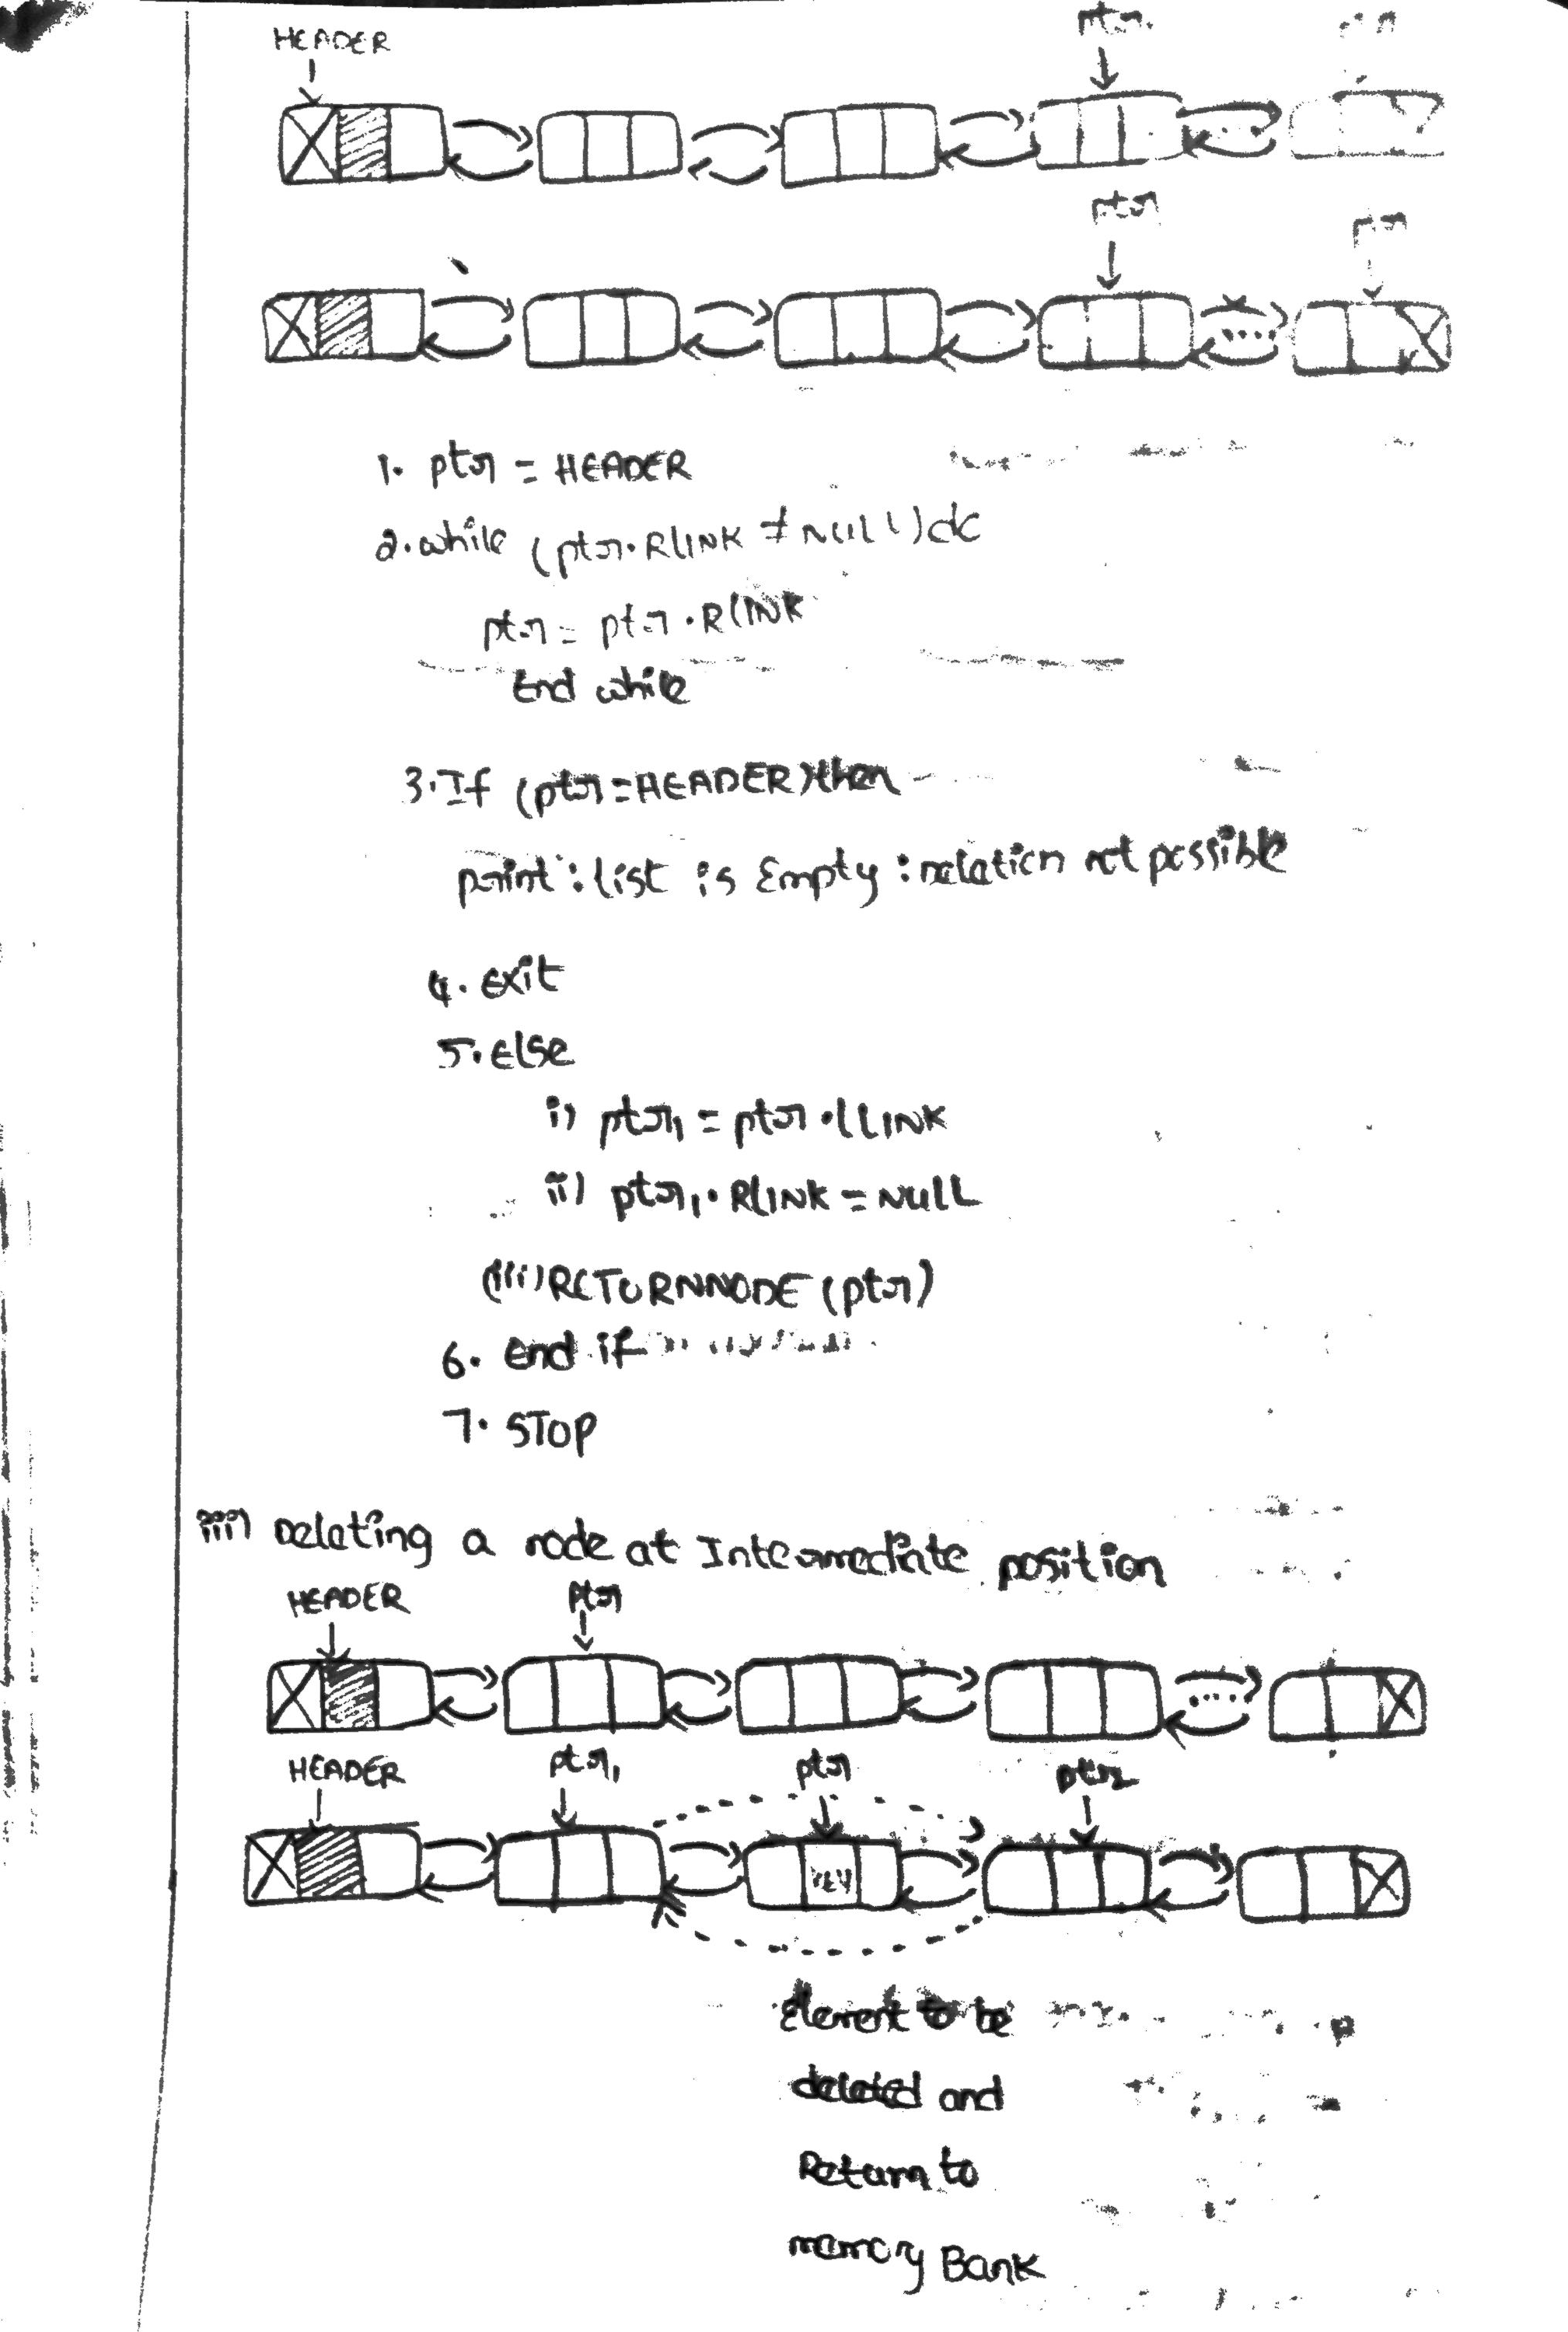 HEADER
ptr
ptr
ptr
1. ptr = HEADER
2. while (ptr.RLINK ≠ NULL) do
ptr = ptr.RLINK
End while
3. If (ptr = HEADER) then
print: list is Empty: deletion not possible
4. Exit
5. Else
i) ptr₁ = ptr.LLINK
ii) ptr₁.RLINK = NULL
(iii) RETURNNODE (ptr)
6. End if
7. STOP
iii) Deleting a node at Intermediate position
HEADER ptr
HEADER ptr₁ ptr ptr₂
KEY
Element to be
deleted and
Return to
memory Bank